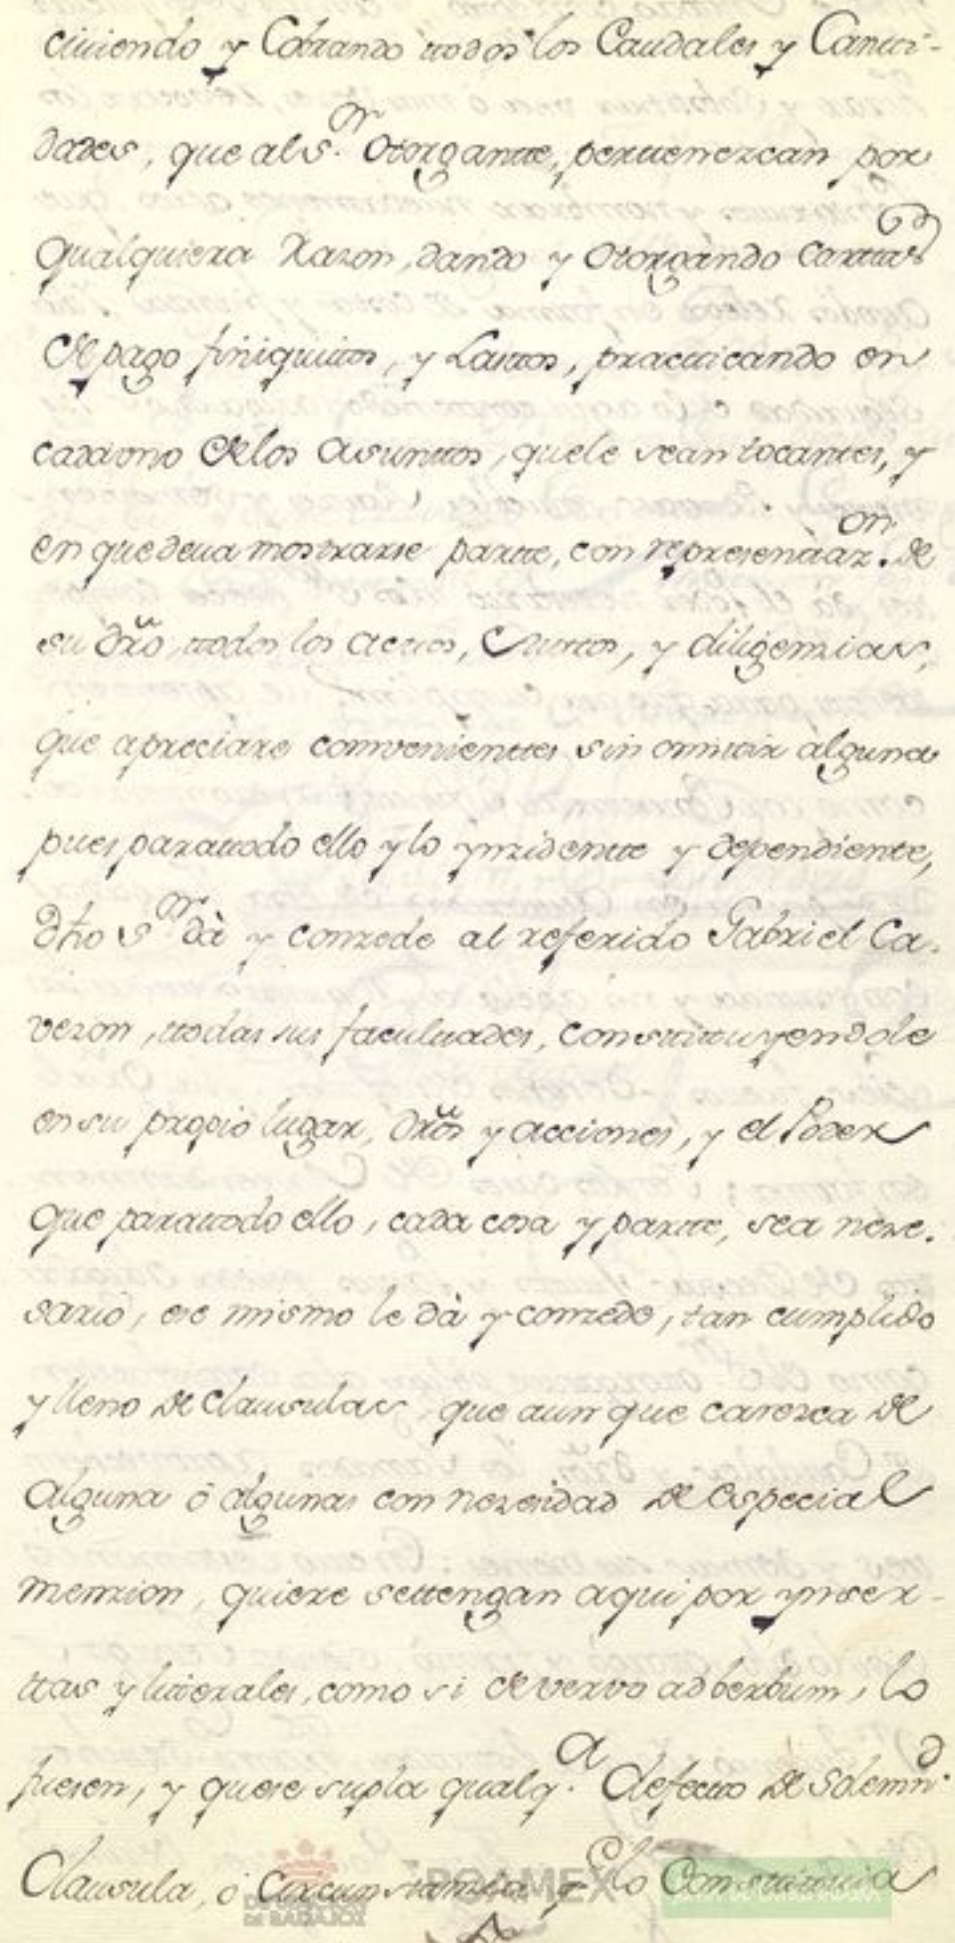 civiendo y Cobrando todos los Caudales y Canti-
dades, que al S.or Otorgante, pertenezcan por
qualquiera Razon, dando y Otorgando Cartas
de pago finiquitos, y Lastos, practicando en
cada uno de los Asunttos, que le sean tocantes, y
en que deva mostrarse partte, con representaz.on de
su dro, todos los Actos, Cursos, y diligenzias,
que apreciare convenienttes sin omitir alguna
pues para todo ello y lo ynzidentte y dependiente,
dho S.or dà y conzede al referido Gabriel Ca-
vezon, todas sus facultades, constituyendole
en su propio lugar, dros y acciones, y el Poder
que para todo ello, cada cosa y partte, sea neze-
sario, ese mismo le dà y conzede, tan cumplido
y lleno de Clausulas, que aunque carezca de
alguna ò algunas con nezesidad de especial
menzion, quiere se ttengan aqui por ynser-
ttas y literales, como si de vervo ad berbum, lo
fuesen, y quiere supla qualq.a defecto de Solemn.d
Clausula, ò Circunstanzia y lo Constituia
DE BADAJOZ